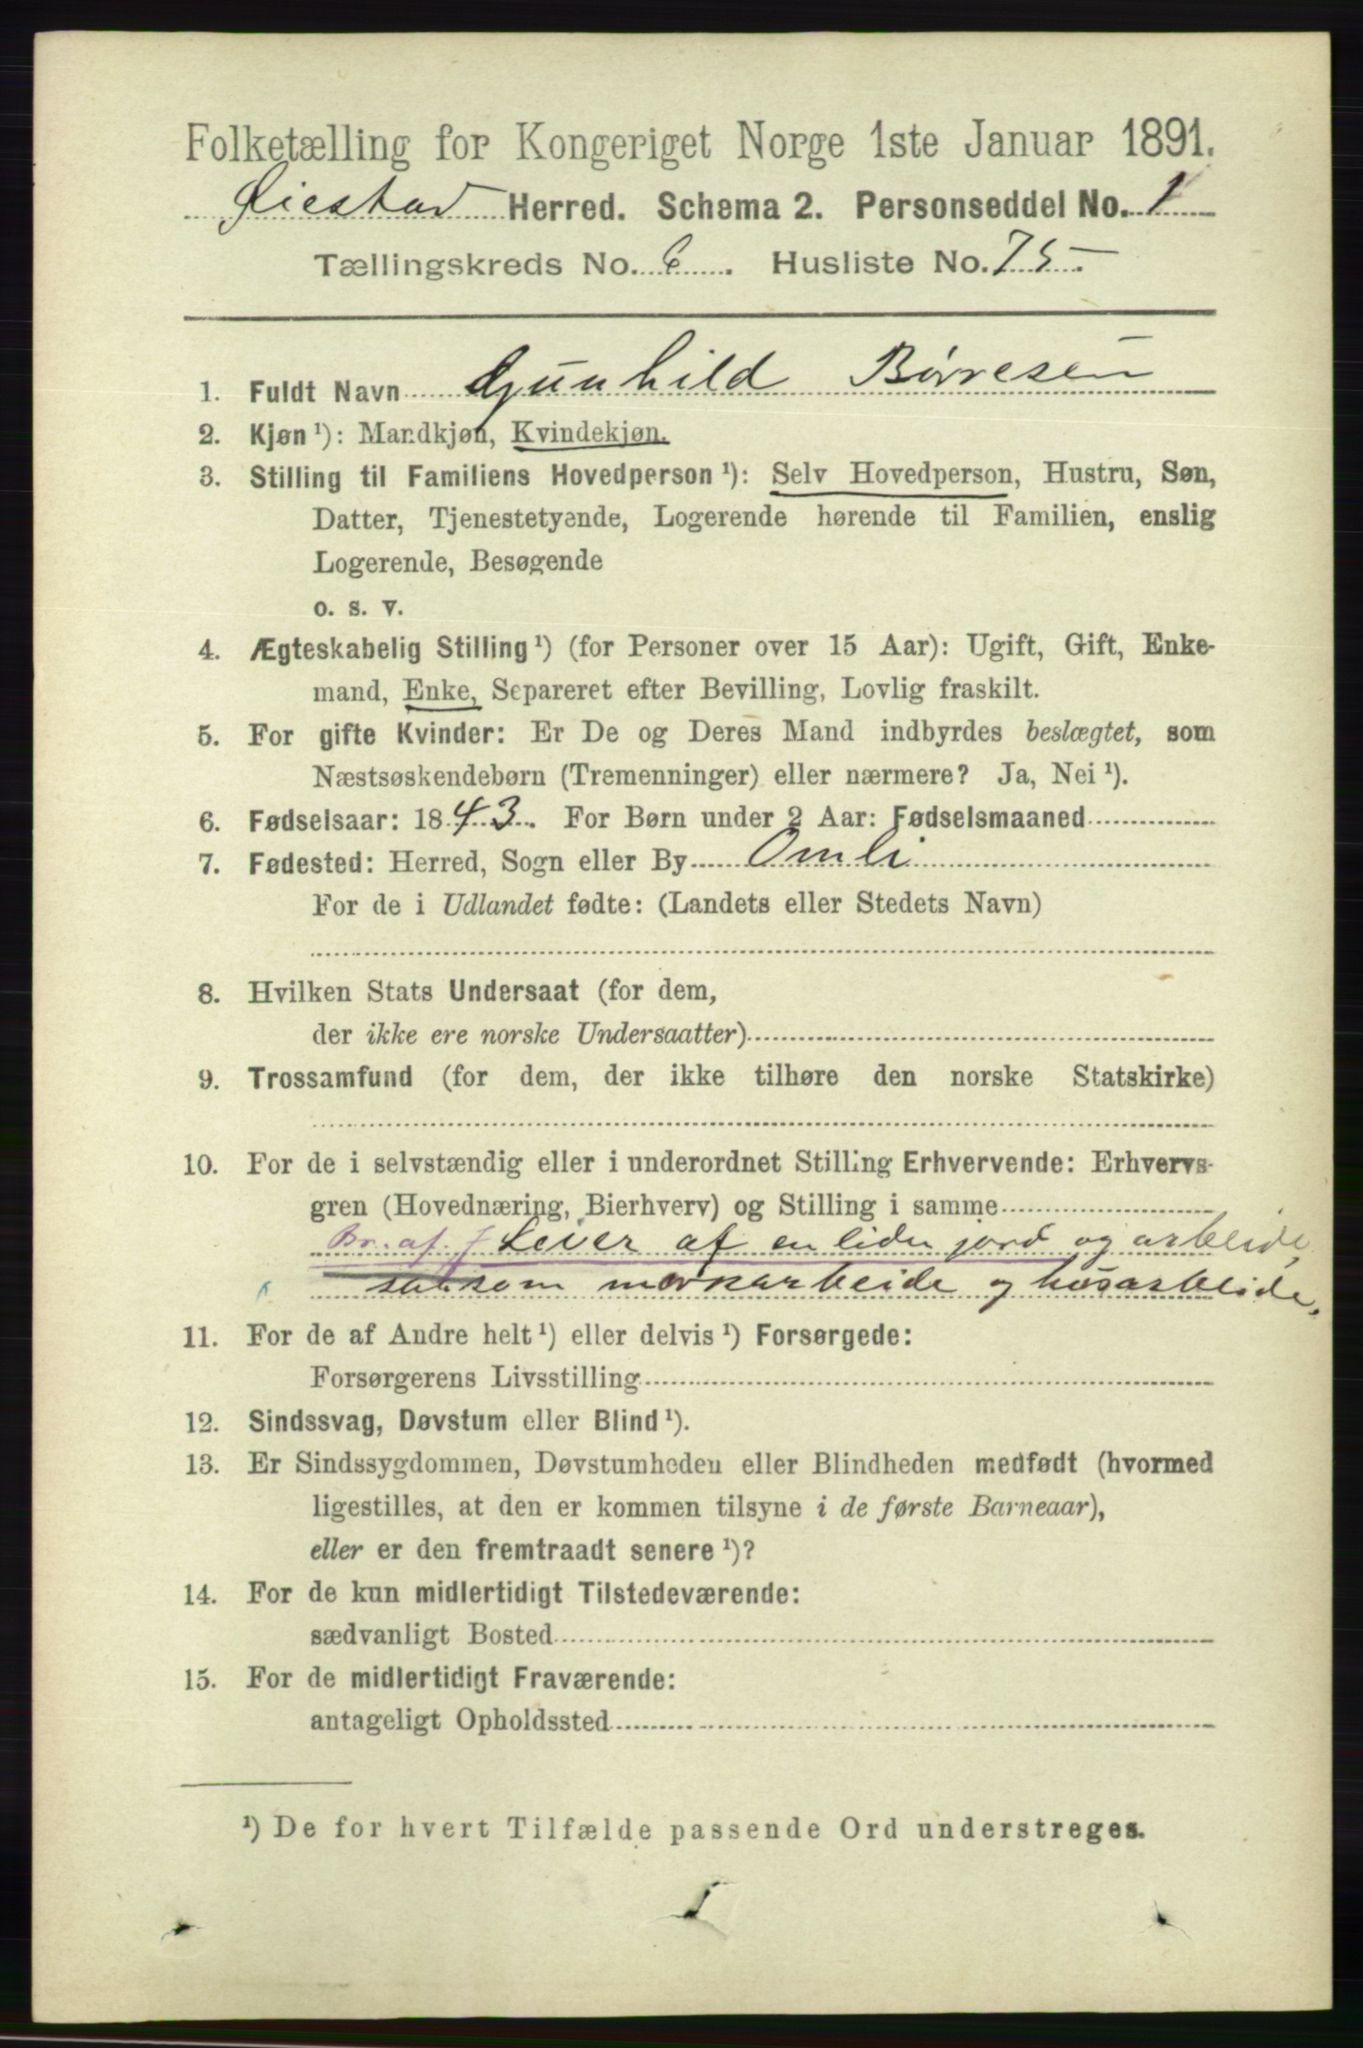 Folketælling for Kongeriget Norge 1ste Januar 1891.
Øiestad Herred. Schema 2. Personseddel No. 1
Tællingskreds No. 6. Husliste No. 75
1. Fuldt Navn Gunhild Børresen
2. Kjøn ¹): Mandkjøn, Kvindekjøn.
3. Stilling til Familiens Hovedperson ¹): Selv Hovedperson, Hustru, Søn,
Datter, Tjenestetyende, Logerende hørende til Familien, enslig
Logerende, Besøgende
o. s. v.
4. Ægteskabelig Stilling ¹) (for Personer over 15 Aar): Ugift, Gift, Enke-
mand, Enke, Separeret efter Bevilling, Lovlig fraskilt.
5. For gifte Kvinder: Er De og Deres Mand indbyrdes beslægtet, som
Næstsøskendebørn (Tremenninger) eller nærmere? Ja, Nei ¹).
6. Fødselsaar: 1843. For Børn under 2 Aar: Fødselsmaaned
7. Fødested: Herred, Sogn eller By Omli
For de i Udlandet fødte: (Landets eller Stedets Navn)
8. Hvilken Stats Undersaat (for dem,
der ikke ere norske Undersaatter)
9. Trossamfund (for dem, der ikke tilhøre den norske Statskirke)
10. For de i selvstændig eller i underordnet Stilling Erhvervende: Erhvervs-
gren (Hovednæring, Bierhverv) og Stilling i samme
Br. af. j Leier af en liden jord og arbeide,
saasom markarbeide og husarbeide,
11. For de af Andre helt ¹) eller delvis ¹) Forsørgede:
Forsørgerens Livsstilling
12. Sindssvag, Døvstum eller Blind ¹).
13. Er Sindssygdommen, Døvstumheden eller Blindheden medfødt (hvormed
ligestilles, at den er kommen tilsyne i de første Barneaar),
eller er den fremtraadt senere ¹)?
14. For de kun midlertidigt Tilstedeværende:
sædvanligt Bosted
15. For de midlertidigt Fraværende:
antageligt Opholdssted
¹) De for hvert Tilfælde passende Ord understreges.